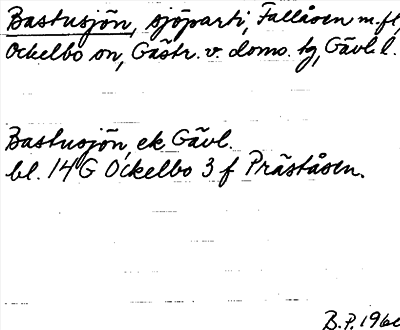 Bastusjön, sjöparti, Fallåsen m.fl,
Ockelbo sn, Gästr. v. doms. tg, Gävl. l.
Bastusjön, ek. Gävl.
bl. 14 G Ockelbo 3 f Präståsen.
B.P. 196